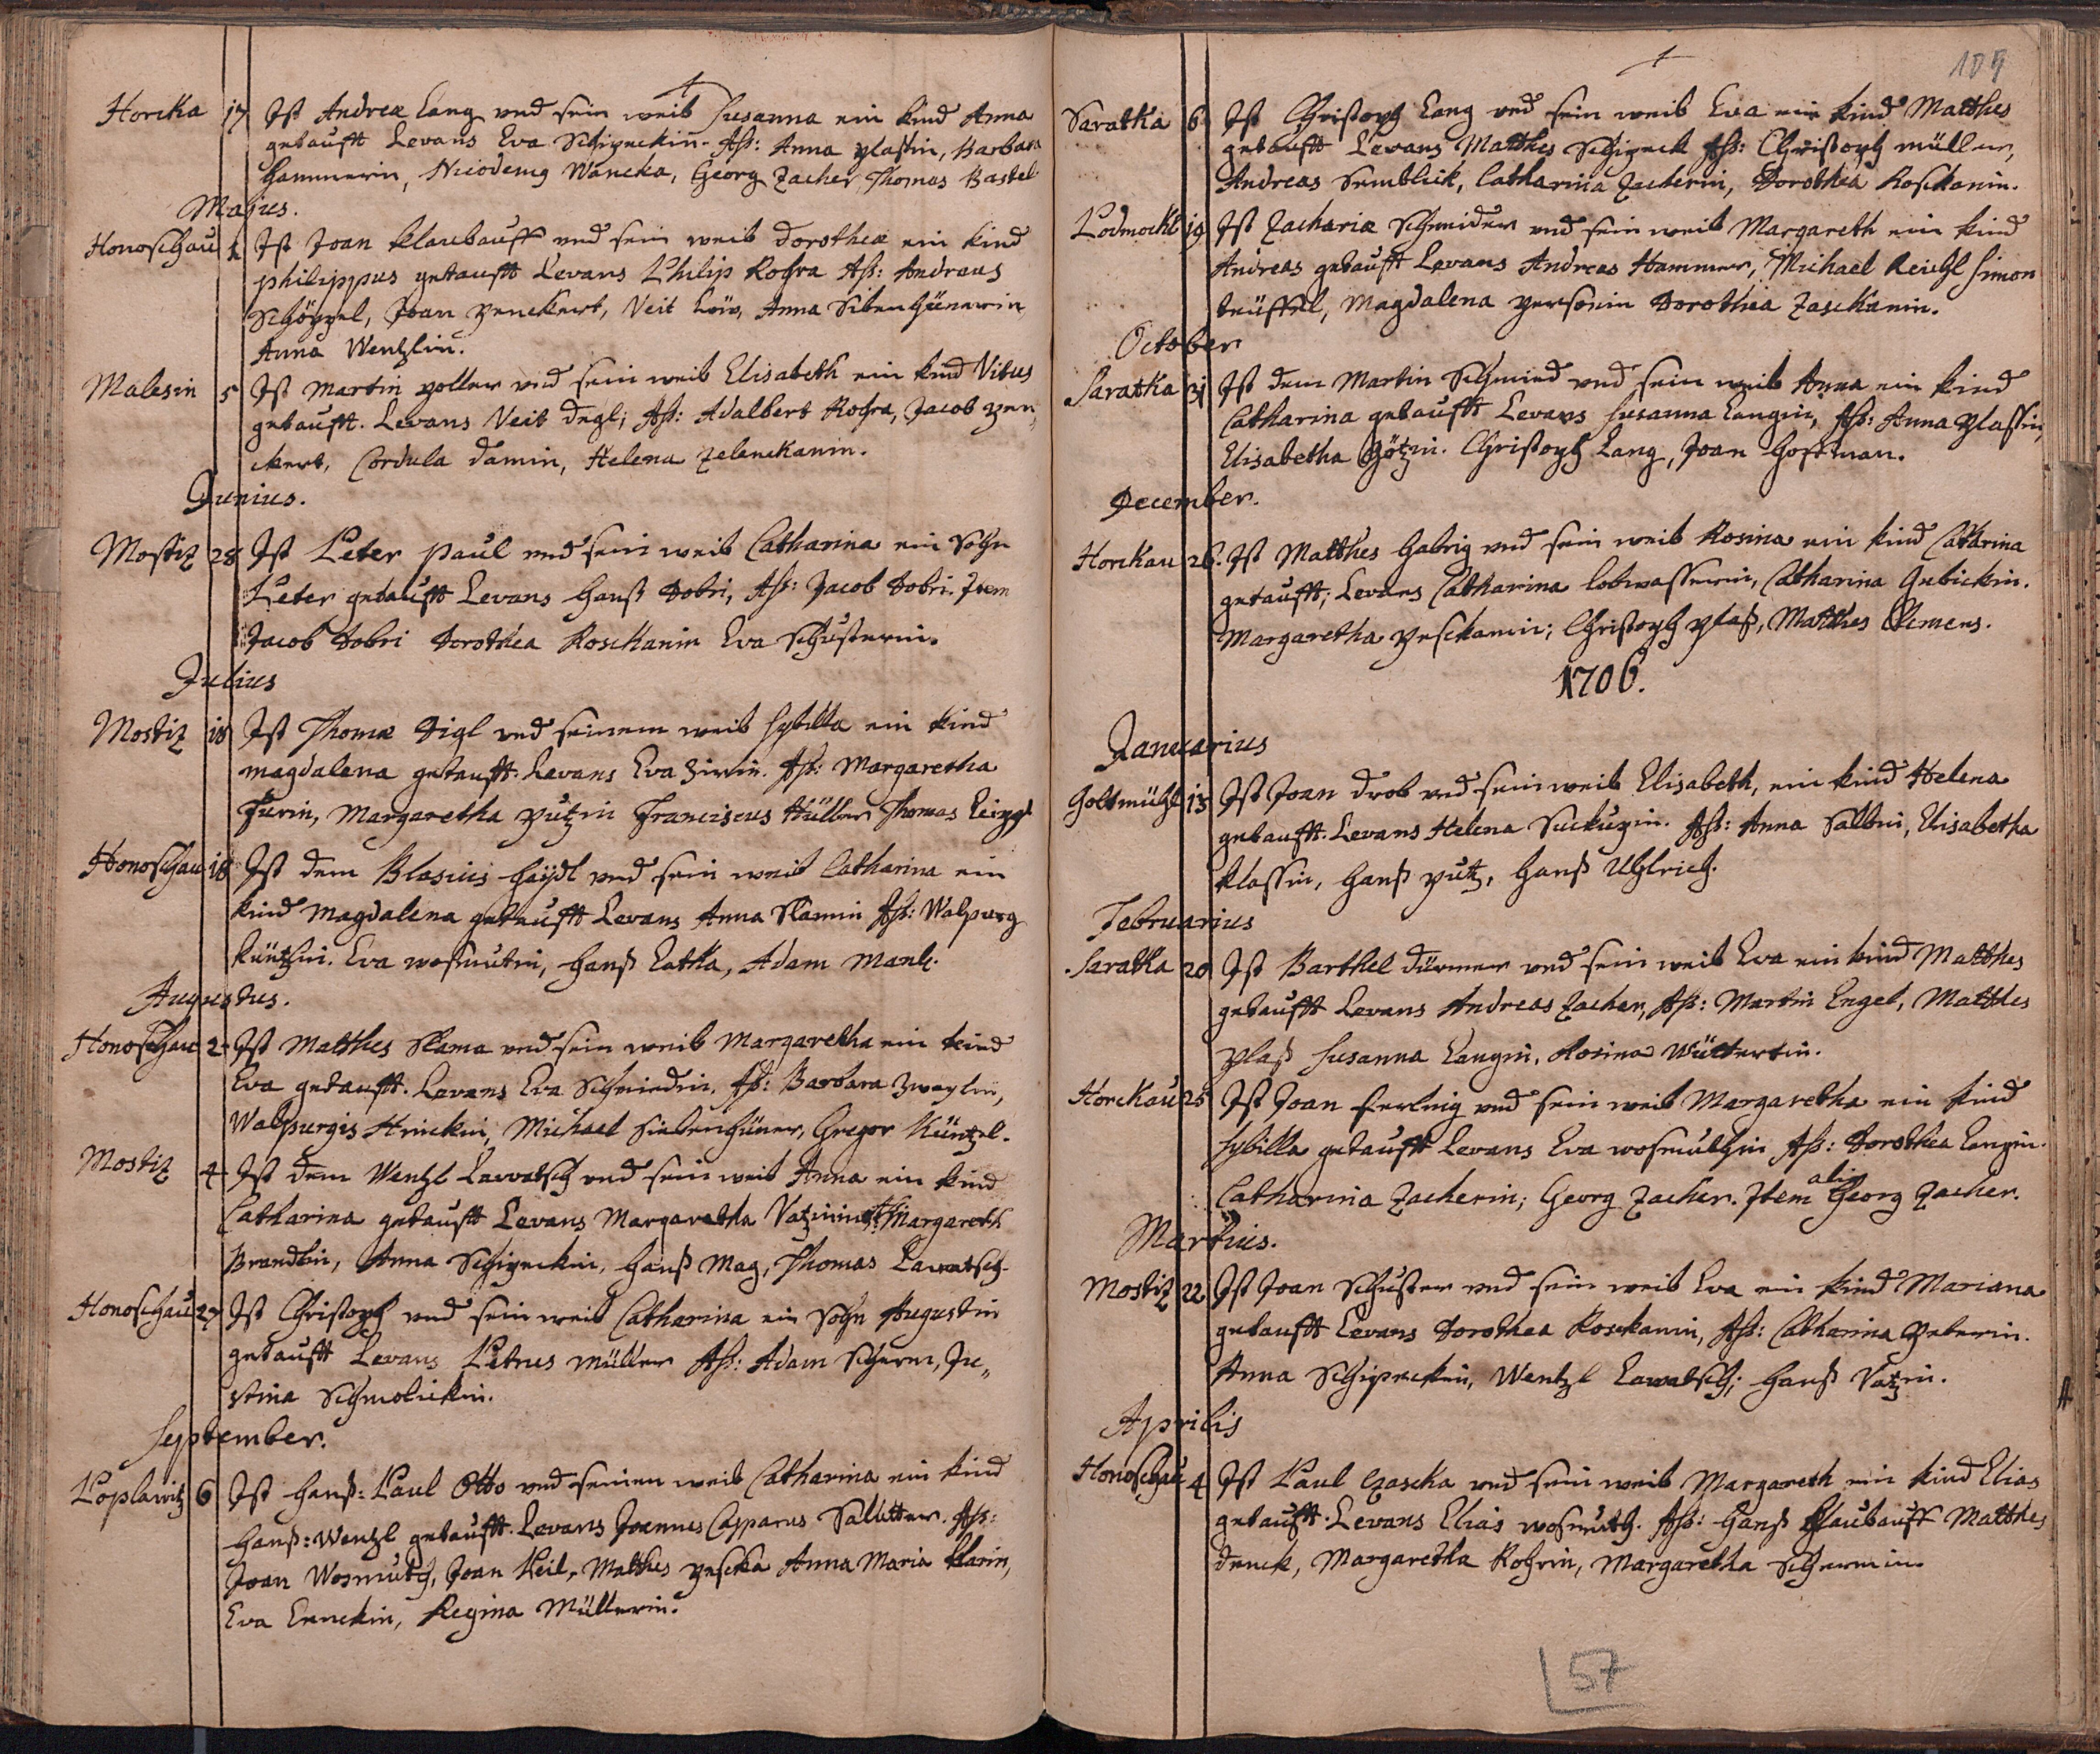 Horcka 17 Ist Andreæ Lang und sein weib Susanna ein kind Anna
getaufft Levans Eva Schipeckin. Aß: Anna plaßin, Barbara
hammerin, Nicodemg Wancka, Georg Zacher, Thomas Bastel
Majus.
Honoschau 1 Ist Joan klaubauff und sein weib dorotheæ ein kind
philippus getaufft Levans Philip Rohra Aß: Andreas
Schöppel, Joan penckert, Veit Löw, Anna Sibenhünerin
Anna Wentzlin.
Malesin 5 Ist Martin poller und sein weib Elisabeth ein kind Vitus
getaufft. Levans Veit degl; Aß: Adalbert Rohra, Jacob pen„
ckert, Cordula damin, Helena Zelenckanin.
Junius.
Mostiz 28 Ist Peter paul und sein weib Catharina ein Sohn
Peter getaufft Levans hanß Dobri, Aß: Jacob Dobri. Item
Jacob Dobri Dorothea Roschanin Eva Schusterin.
Julius
Mostiz 18 Ist Thomæ Digl und seinem weib Sybilla ein kind
magdalena getaufft. Levans Eva Zirin. Aß: Margaretha
Furin, Margaretha putzin Franciscus Hüller Thomas
Honoschau 18 Ist dem Blasius haÿdl und sein weib Catharina ein
kind Magdalena getaufft Levans Anna Slamin Aß: Walpurg
küntzlin. Eva wosmutin, hanß Latka, Adam Mank.
Augustus.
Honoschau 2 Ist Matthes Slama und sein weib Margaretha ein kind
Eva getaufft. Levans Eva Schmiedin. Aß: Barbara
Walpurgis Hruckin, Michael Siebenhüner, Gregor Küntzel.
Mostiz 4 Ist dem Wentzl Lawatsch und sein weib Anna ein kind
Catharina getaufft Levans Margaretha Vatzinin Margareth
Brandlin, Anna Schipeckin, hanß Mag, Thomas Lawatsch.
Honoschau 27 Ist Christoph und sein weib Catharina ein Sohn Augustin
getaufft Levans Petrus müller Aß: Adam Scherm, Ju„
stina Schmolickin.
September.
Poplawitz 6 Ist hanß: Paul Otto und seinen weib Catharina ein kind
hanß: Wenzl getaufft. Levans Joannes Casparus Salitter. Aß:
Joan Wosmuth, Joan Keil, Matthes peschka Anna Maria klarin,
Eva Ennckin, Regina Müllerin.
109
Saratka 6 Ist Christoph Lang und sein weib Eva ein kind Matthes
getaufft Levans Matthes Schipeck Aß: Christoph müller,
Andreas Semblick, Catharina Zacherin, Dorothea Roschanin.
Lodmockl 19 Ist Zachariæ Schneider und sein weib Margareth ein kind
Andreas getaufft Levans Andreas Hammer, Michael Reichl Simon
teüffel, Magdalena persönin Dorothea Zaschkanin.
October
Saratka 31 Ist dem Martin Schmied und sein weib Anna ein kind
Catharina getaufft Levans Susanna Langin, Aß: Anna plaßin,
Elisabetha Götzin. Christoph Lang, Joan hoffman.
December.
Horckau 26. Ist Matthes habrig und sein weib Rosina ein kind Catharina
getaufft; Levans Catharina lobwasserin, Catharina Gebickin.
Margaretha peschanin; Christoph plaß, Matthes Clemens.
1706.
Januarius
Goltmühl 13 Ist Joan drob und sein weib Elisabeth, ein kind Helena
getaufft. Levans Helena Suckupin. Aß: Anna Salbin, Elisabetha
klassin, hanß putz, hanß Uhlrich.
Februarius
Saratka 20 Ist Barthel dürmer und sein weib Eva ein kind Matthes
getaufft Levans Andreas Zacher, Aß: Martin Engel, Matthes
plaß Susanna Langin, Rosina Wütterin.
Horckau 25 Ist Joan Ferlnig und sein weib Margaretha ein kind
Sybilla getaufft Levans Eva wosmuthin Aß: Dorothea Langin.
Catharina Zacherin; Georg Zacher. Item alig Georg Zacher.
Martius.
Mostiz 22 Ist Joan Schuster und sein weib Eva ein kind Mariana
getaufft Levans Dorothea Roschanin, Aß: Catharina peterin.
Anna Schipeckin, Wentzl Lawatsch; hanß Vatzin.
Aprilis
Honoschau 4 Ist Paul Czaschka und sein weib Margareth ein kind Elias
getaufft. Levans Elias wosmuth. Aß: hanß klaubauff Matthes
denck, Margaretha Rohrin, Margaretha Schermin.
57